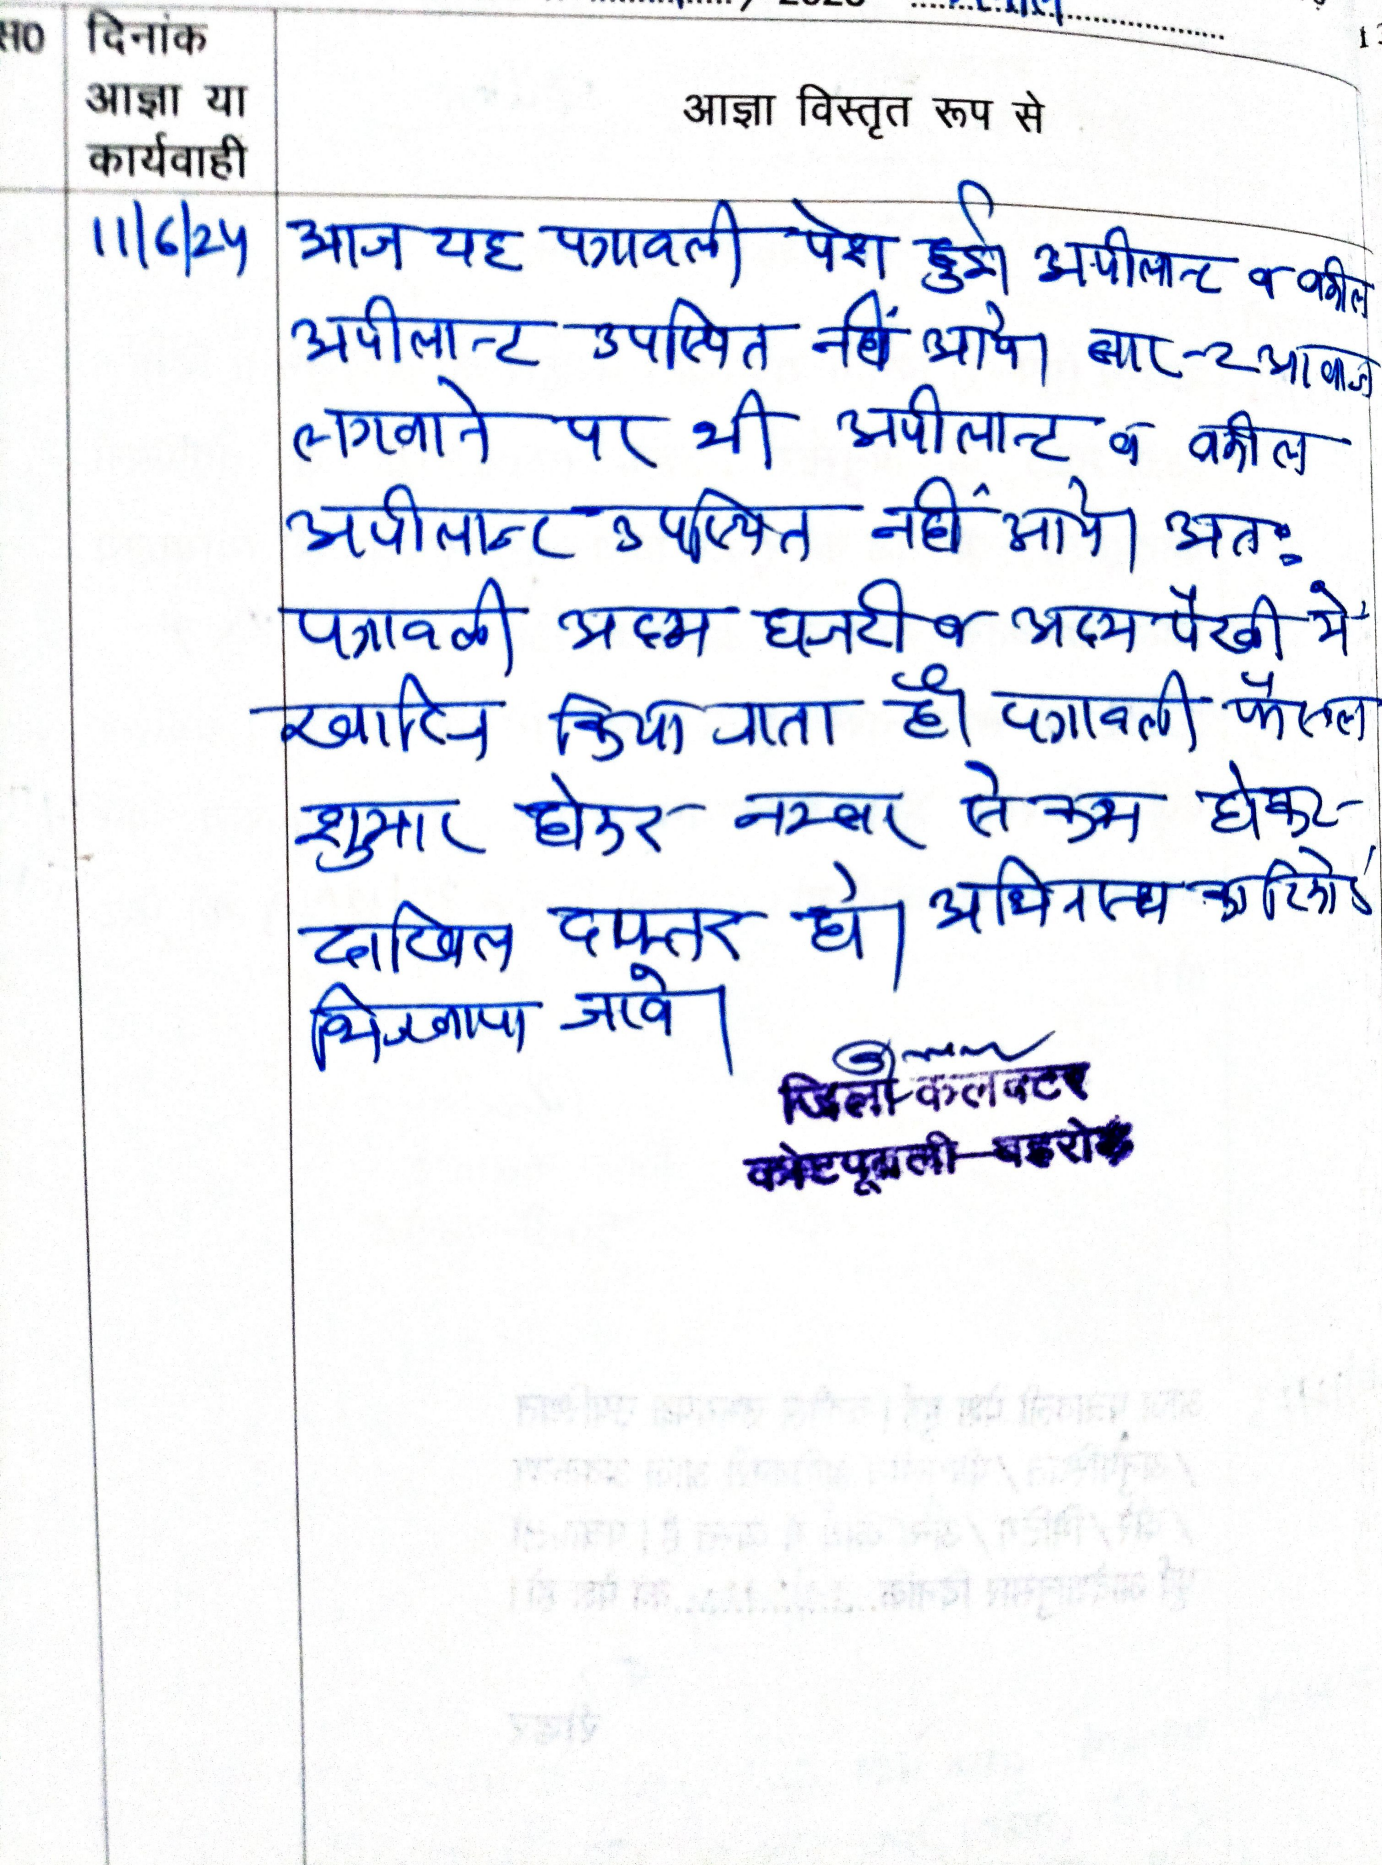 स0 दिनांक
आज्ञा या
कार्यवाही
आज्ञा विस्तृत रूप से
11/6/25 आज यह पत्रावली पेश हुई। अपीलान्ट व वकील
अपीलान्ट उपस्थित नहीं आये। बार-2 आवाज
लगवाने पर भी अपीलान्ट व वकील
अपीलान्ट उपस्थित नहीं आये। अतः
पत्रावली अदम हाजरी व अदम पैरवी में
खारिज किया जाता है। पत्रावली फैसल
शुमार होकर नम्बर से कम होकर
दाखिल दफ्तर हो। अधिनस्थ का रिकोर्ड
भिजवाया जावे।
जिला कलक्टर
कोटपूतली-बहरोड़